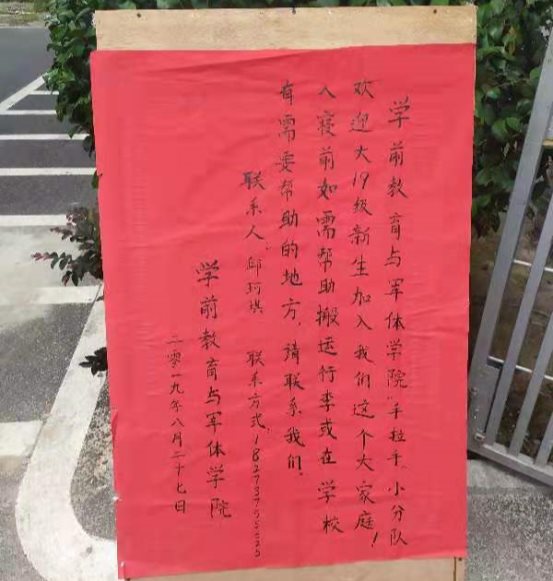 学前教育与军体学院“手拉手”小分队
欢迎大19级新生加入我们这个大家庭！
入寝前如需帮助搬运行李或在学校
有需要帮助的地方，请联系我们。
联系人：邱珂祺 联系方式：18273755525
学前教育与军体学院
二零一九年八月二十七日